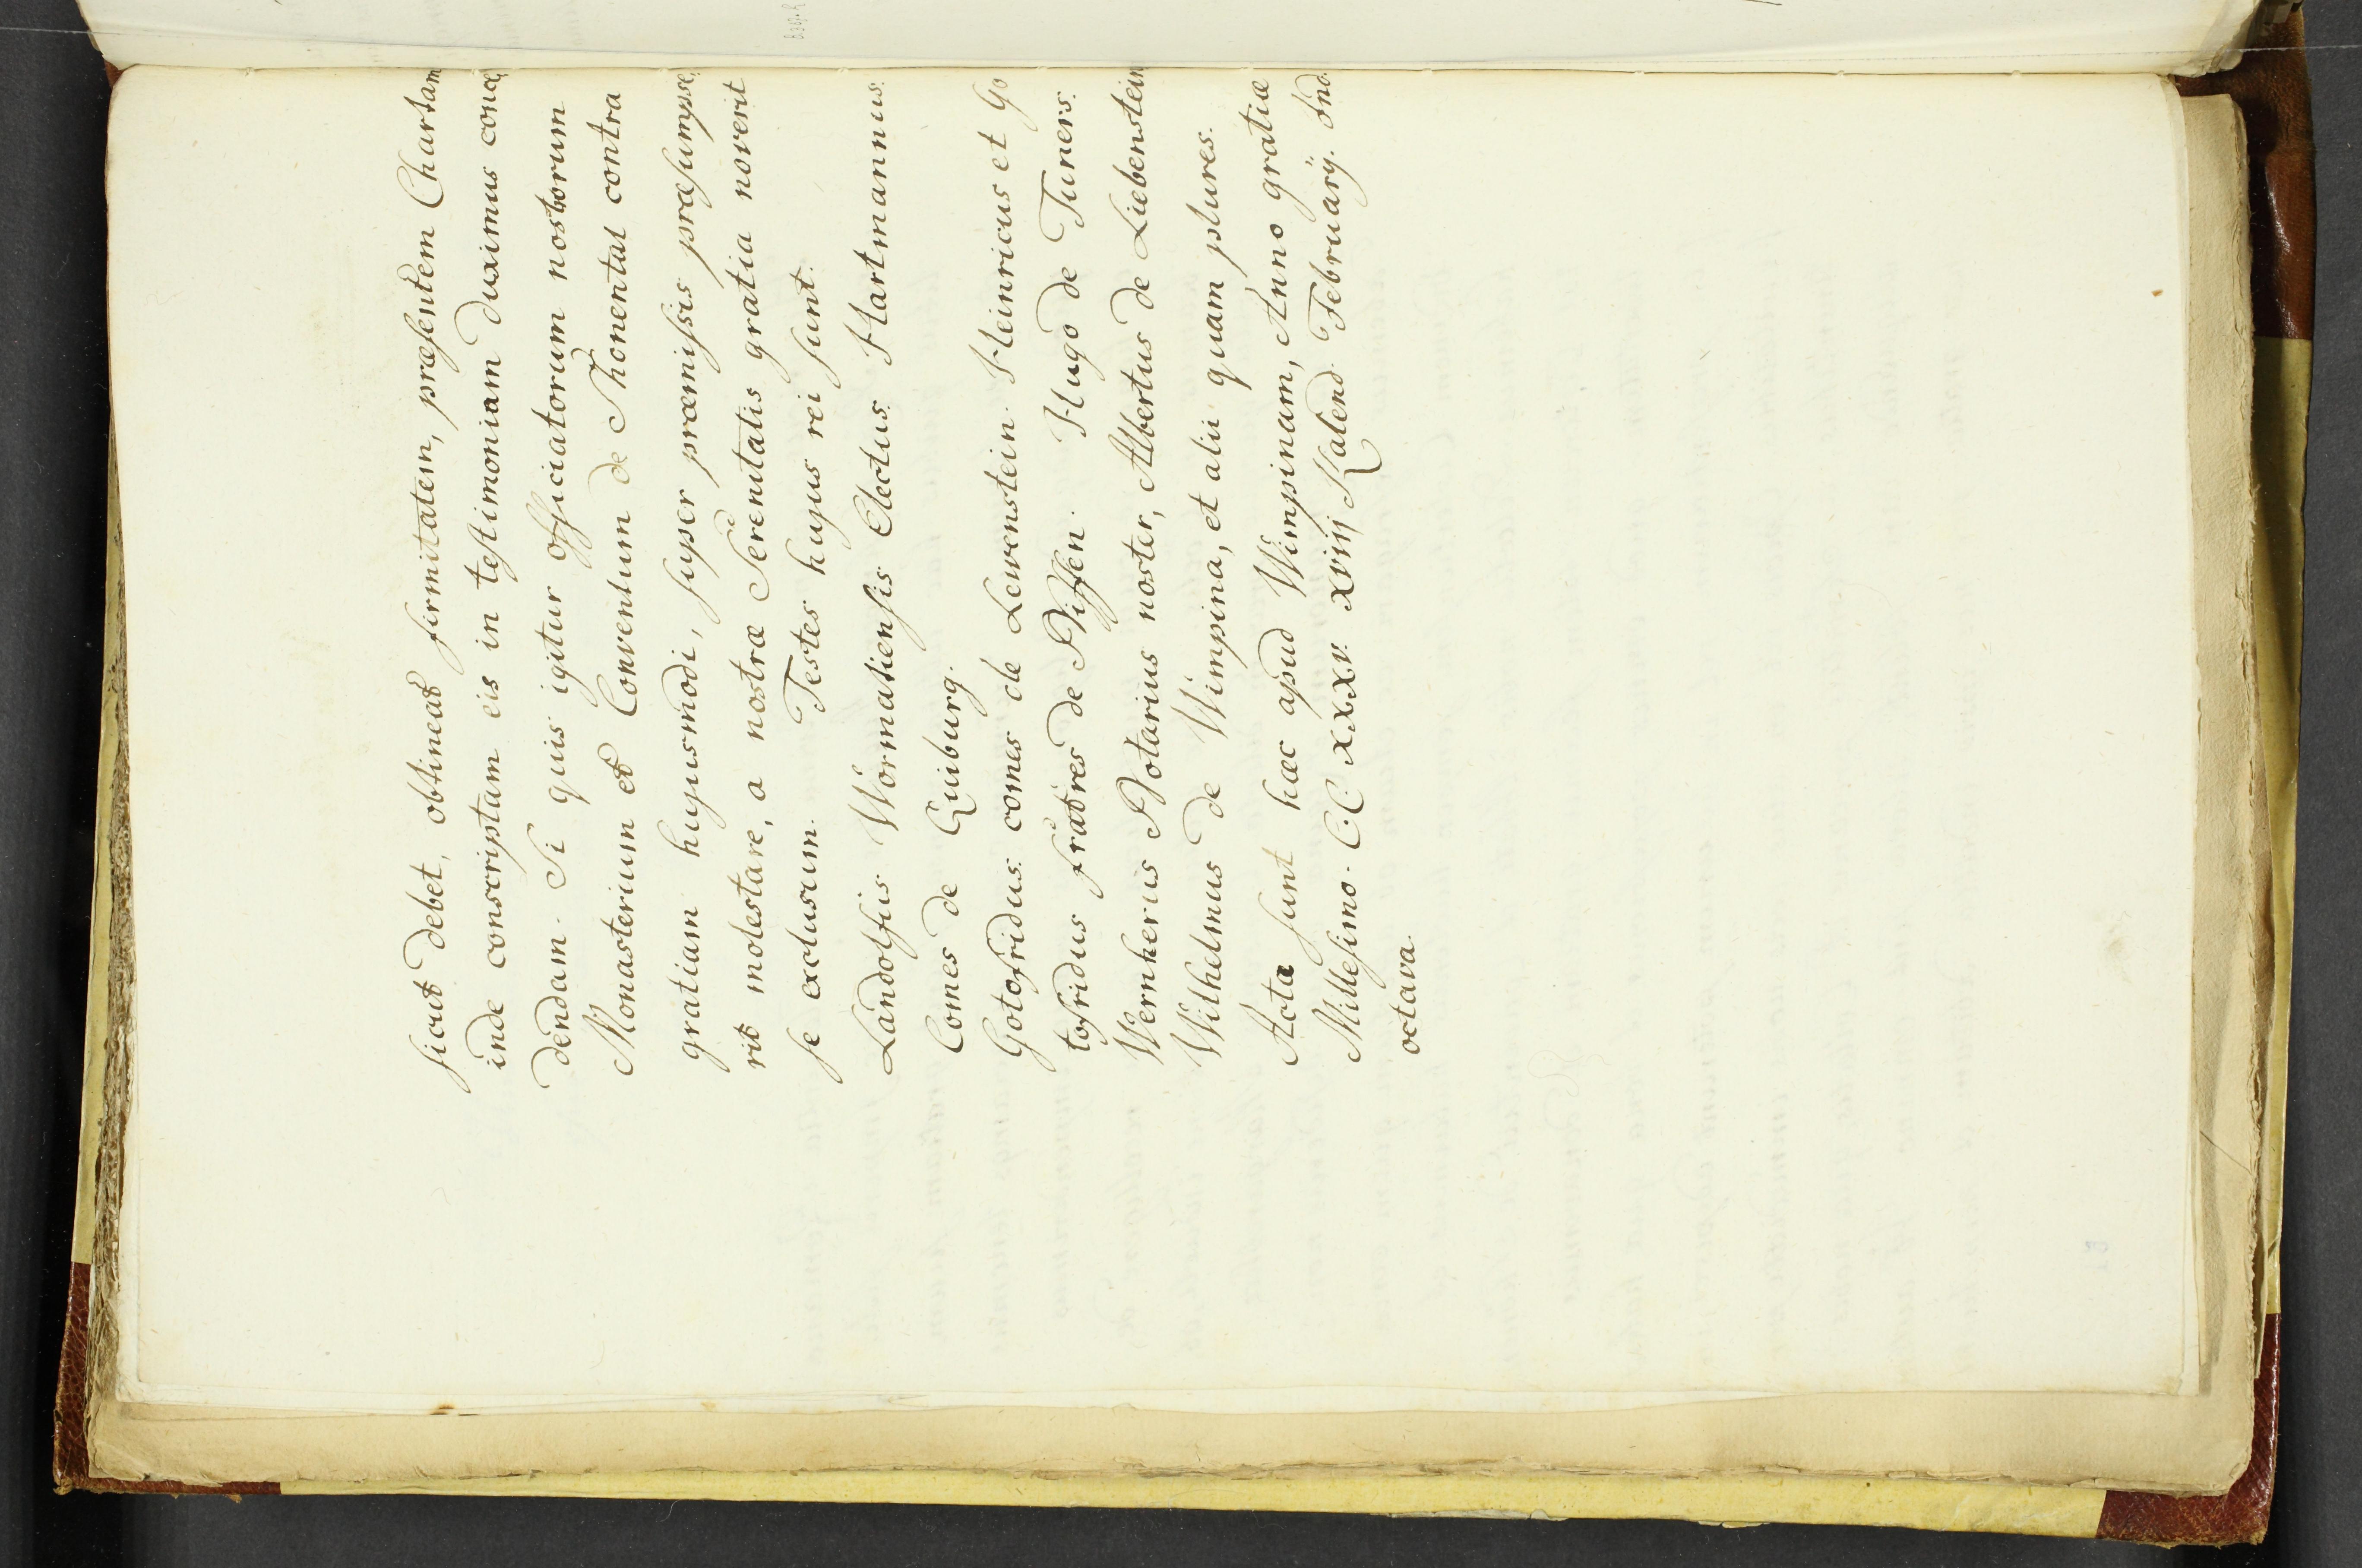 sicut debet, obtineat firmitatem, præsentem Chartam
inde conscriptam eis in testimoniam duximus conce,
dendam. Si quis igitur officiatorum nostrorum
Monasterium et Conventum de Thonental contra
gratiam hujusmodi, super præmissis præsumpse,
rit molestare, a nostræ Serenitatis gratia noverit
se exclusum. Testes hujus rei sunt.
Landolfus Wormatiensis Electus. Hartmannus.
Comes de Quiburg.
Gotofridus comes de Lewenstein. Heinricus et Go
tofridus fratres de Niffen. Hugo de Tuners.
Wernherus Notarius noster, Albertus de Liebenstein
Wilhelmus de Wimpina, et alii quam plures.
Acta sunt hæc apud Wimpinam, Anno gratiæ
Millesimo. C.C. xxxv. xviij Kalend. Februarij. Ind.
octava.